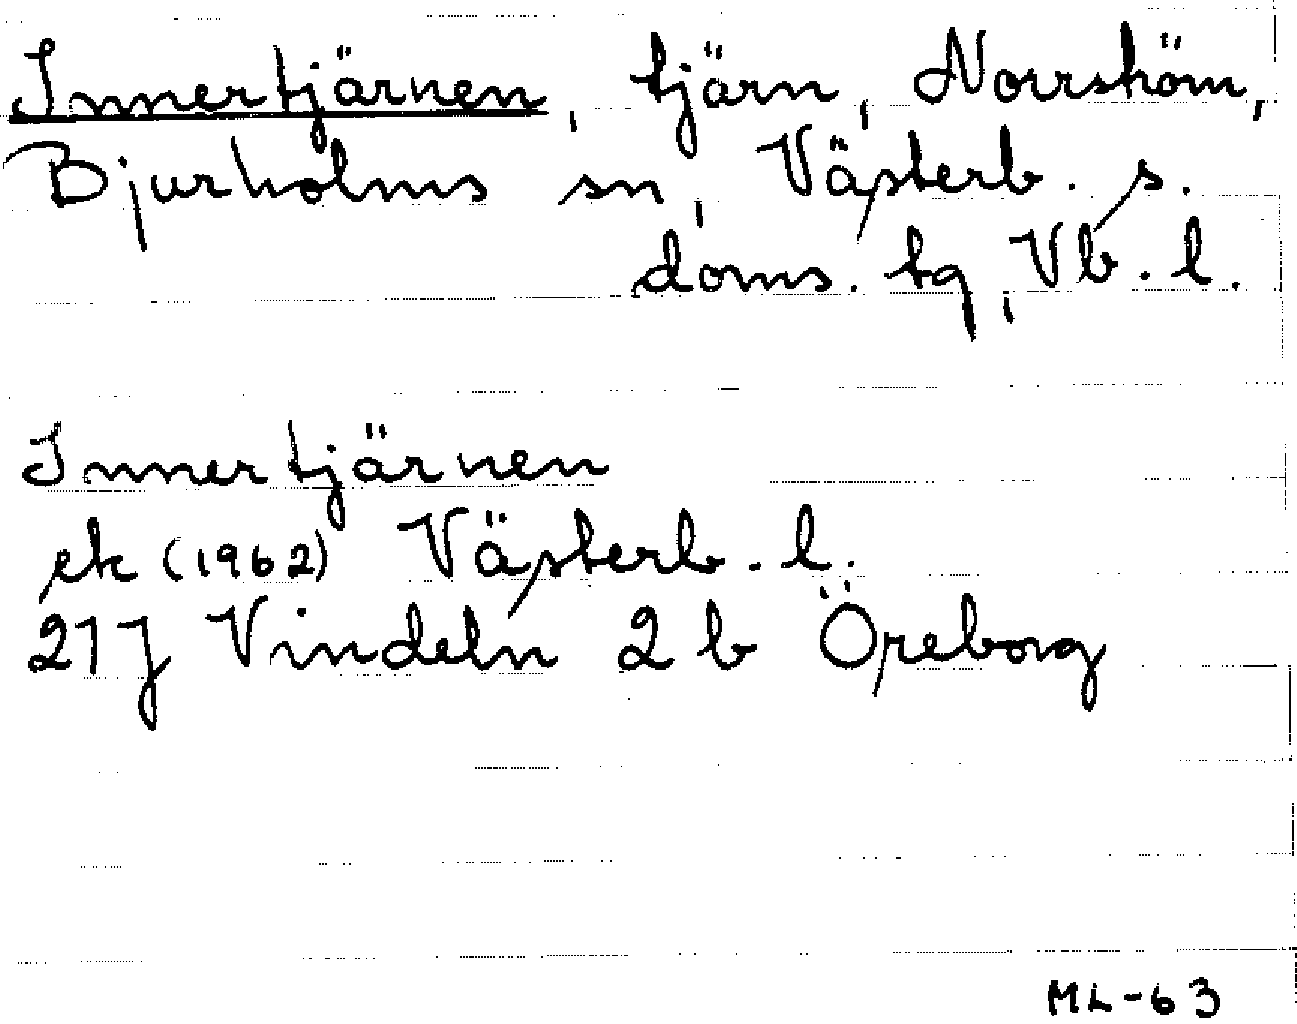 Innertjärnen, tjärn, Norrshöm,
Bjurholms sn, Västerb. s.
doms. tq, Vb. l.
Innertjärnen
ek (1962) Västerb. l.
21J Vindeln 2 b Öreborg
ML-63